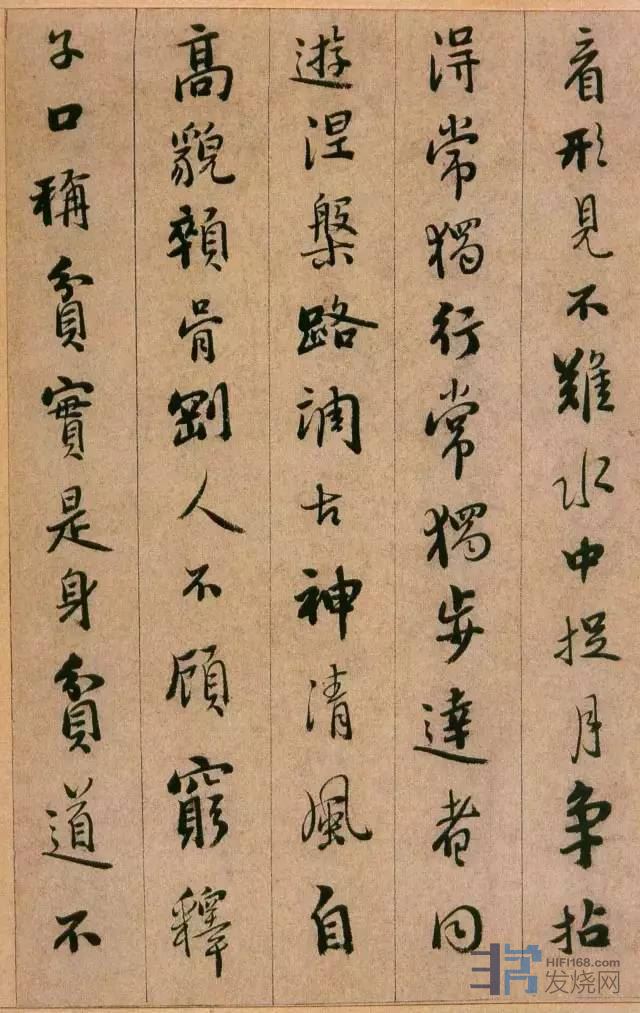 看形見不難水中捉月争拈
得常獨行常獨步達者同
遊涅槃路調古神清風自
高貌顇骨剛人不顧窮釋
子口稱貧實是身貧道不
HIFI168.com
发烧网